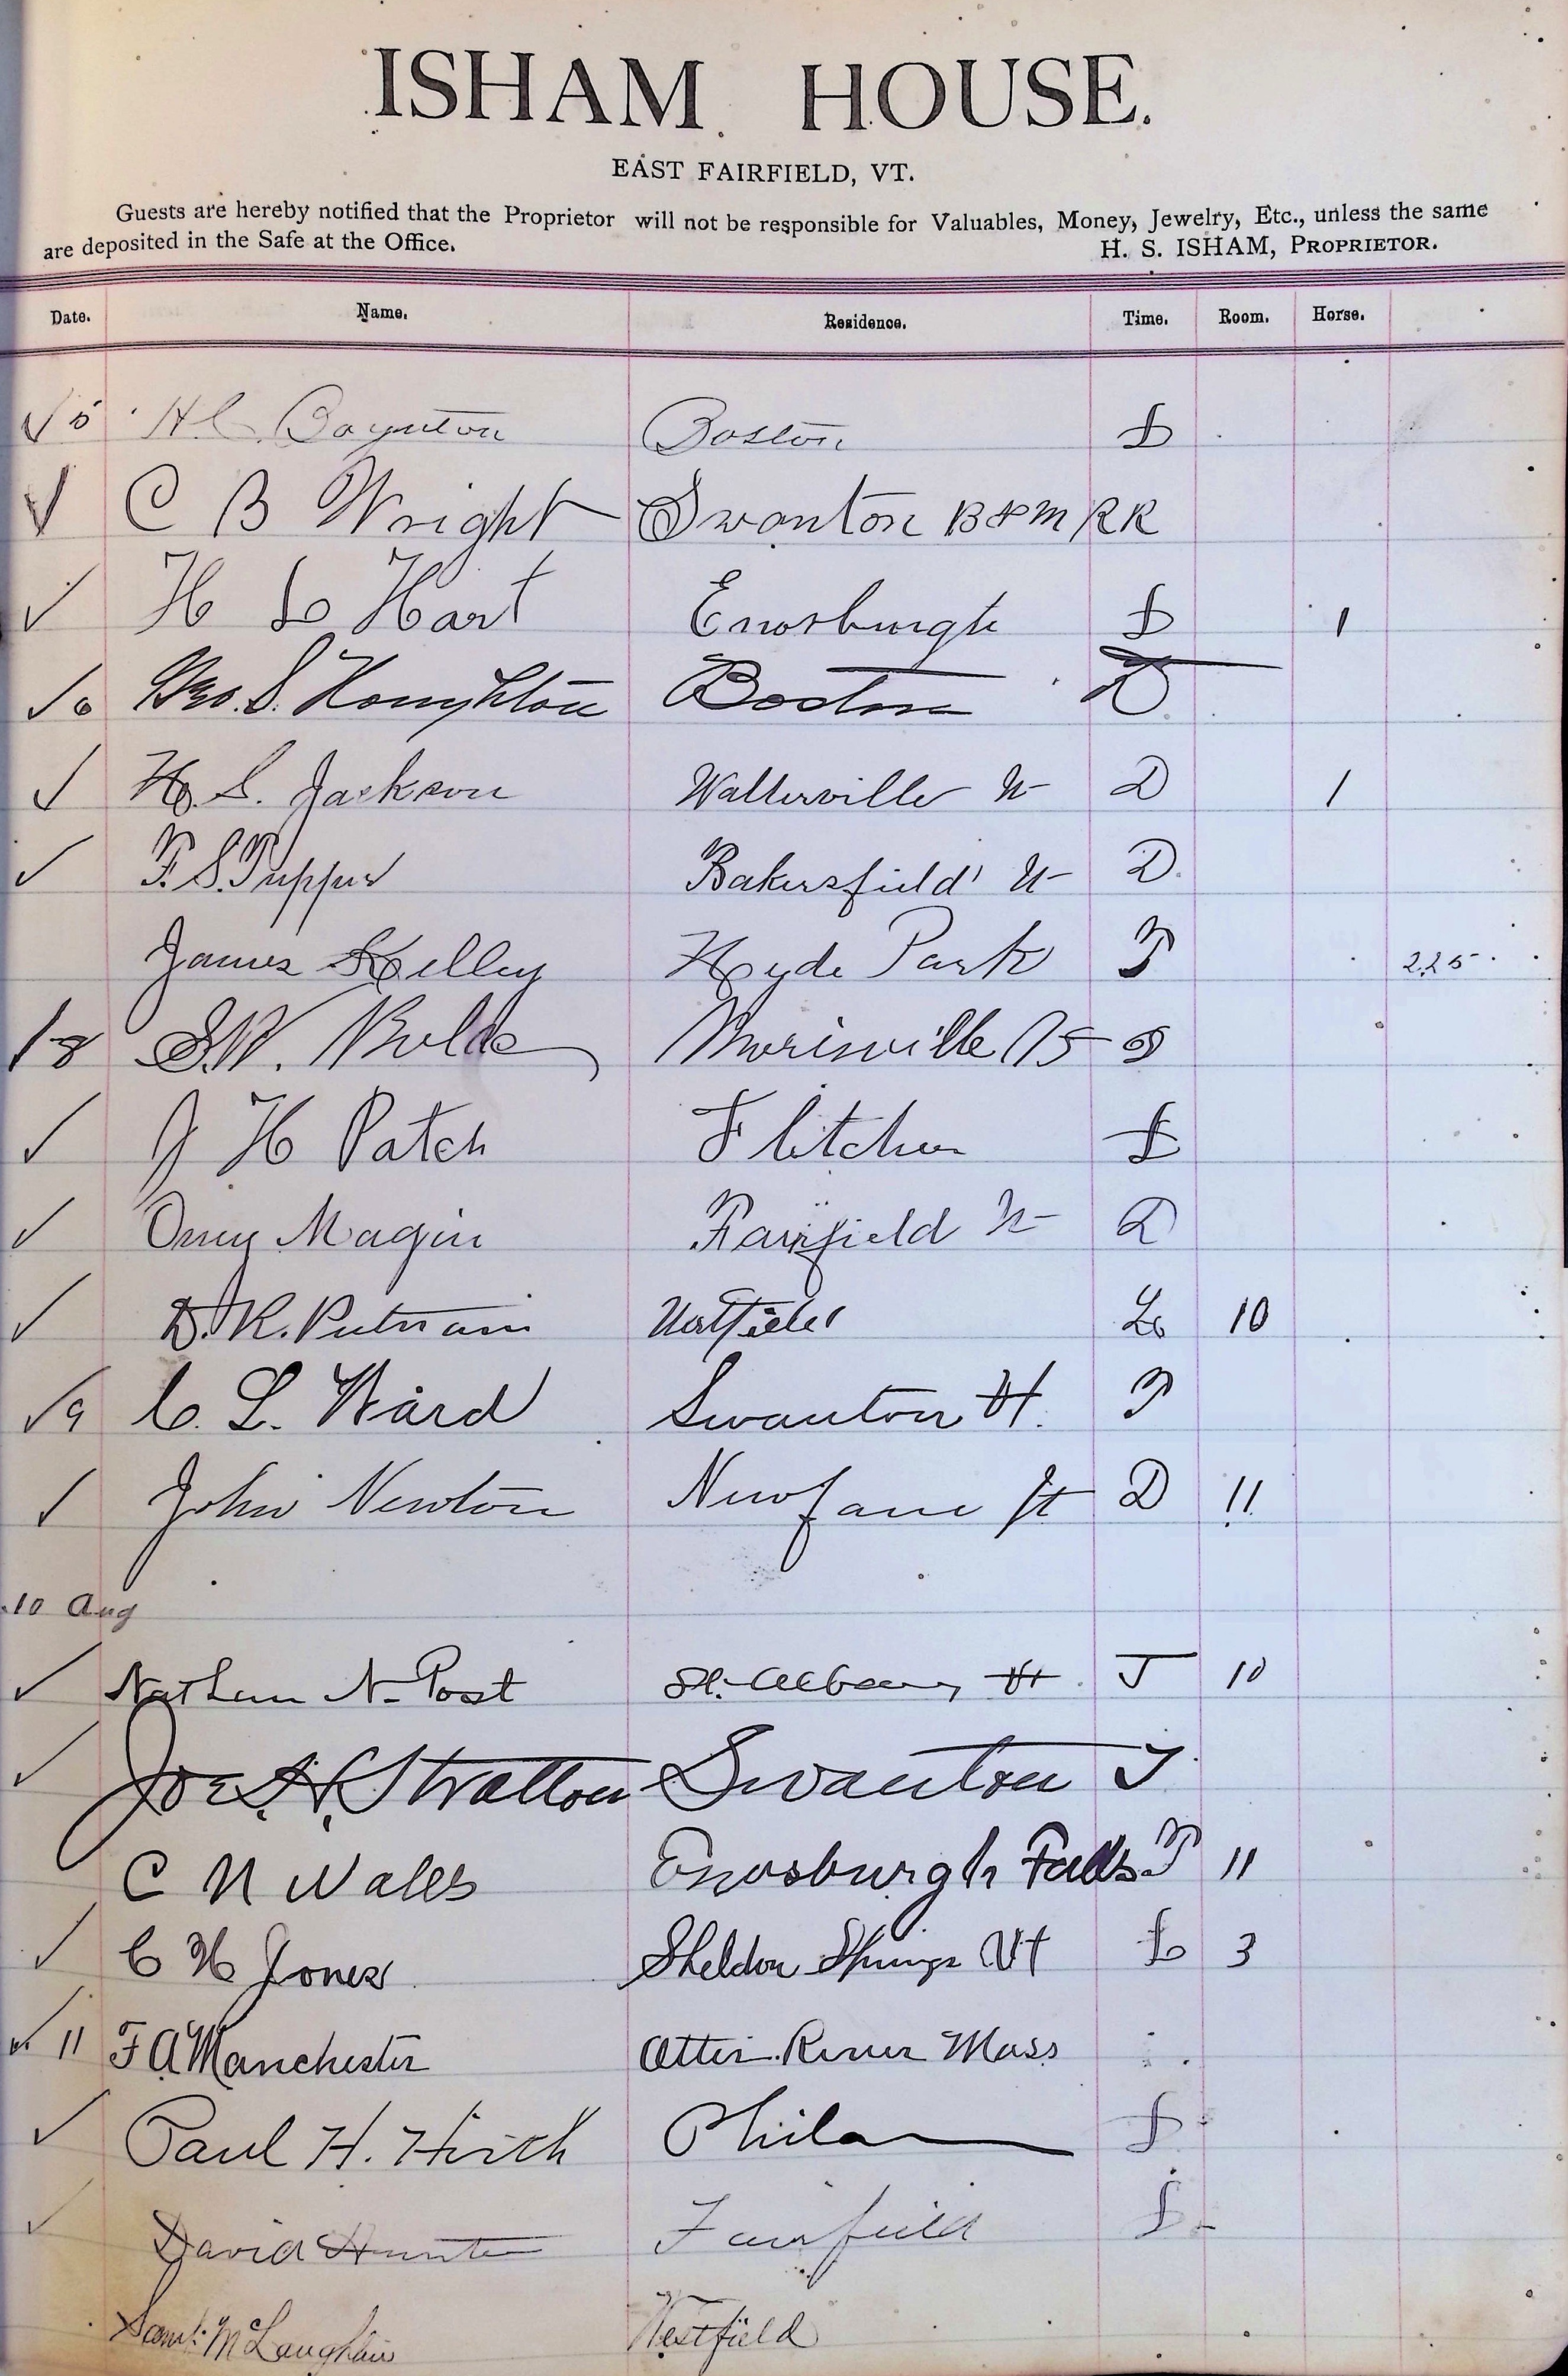 ISHAM HOUSE.
EAST FAIRFIELD, VT.
Guests are hereby notified that the Proprietor will not be responsible for Valuables, Money, Jewelry, Etc., unless the same
are deposited in the Safe at the Office. H. S. ISHAM, PROPRIETOR.
Date. Name. Residence. Time. Room. Horse.
✓ 5 H. C. Boynton Boston D
✓ C B Wright Swanton B & M RR
✓ H L Hart Enosburgh D 1
✓ 6 Geo. S. Houghton Boston D
✓ H. S. Jackson Watterville Vt D 1
✓ F. S. Tupper Bakersfield Vt D
James Kelley Hyde Park T 225
8 S. W. Morisville
✓ J H Patch Fletcher D
✓ Magin Fairfield Vt D
✓ D. K. Putnam L 10
✓ 9 C. L. Ward Swanton Vt. T
✓ John Newton Newfane Vt D 11
10 Aug
✓ Nathan N. Post St. Albans, Vt. T 10
✓ Joe A. Stratton Swanton T
C N Wales Enosburgh Falls T 11
✓ C H Jones Sheldon Springs Vt L 3
✓ 11 F A Manchester Otter River Mass
✓ Paul H. Hirth Phila D
✓ David Hunter Fairfield D
Saml. McLaughlin Westfield